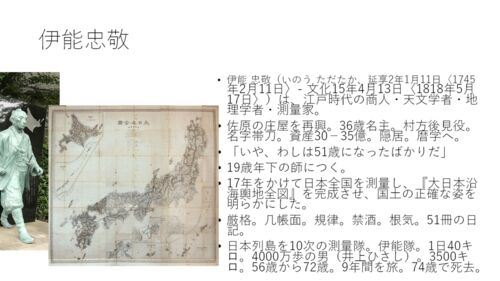 伊能忠敬
• 伊能 忠敬（いのう ただたか、延享2年1月11日〈1745
年2月11日〉- 文化15年4月13日〈1818年5月
17日〉）は、江戸時代の商人・天文学者・地
理学者・測量家。
• 佐原の庄屋を再興。36歳名主。村方後見役。
名字帯刀。資産30－35億。隠居。暦学へ。
• 「いや、わしは51歳になったばかりだ」
• 19歳年下の師につく。
• 17年をかけて日本全国を測量し、『大日本沿
海輿地全図』を完成させ、国土の正確な姿を
明らかにした。
• 厳格。几帳面。規律。禁酒。根気。51冊の日
記。
• 日本列島を10次の測量隊。伊能隊。1日40キ
ロ。4000万歩の男（井上ひさし）。3500キ
ロ。56歳から72歳。9年間を旅。74歳で死去。